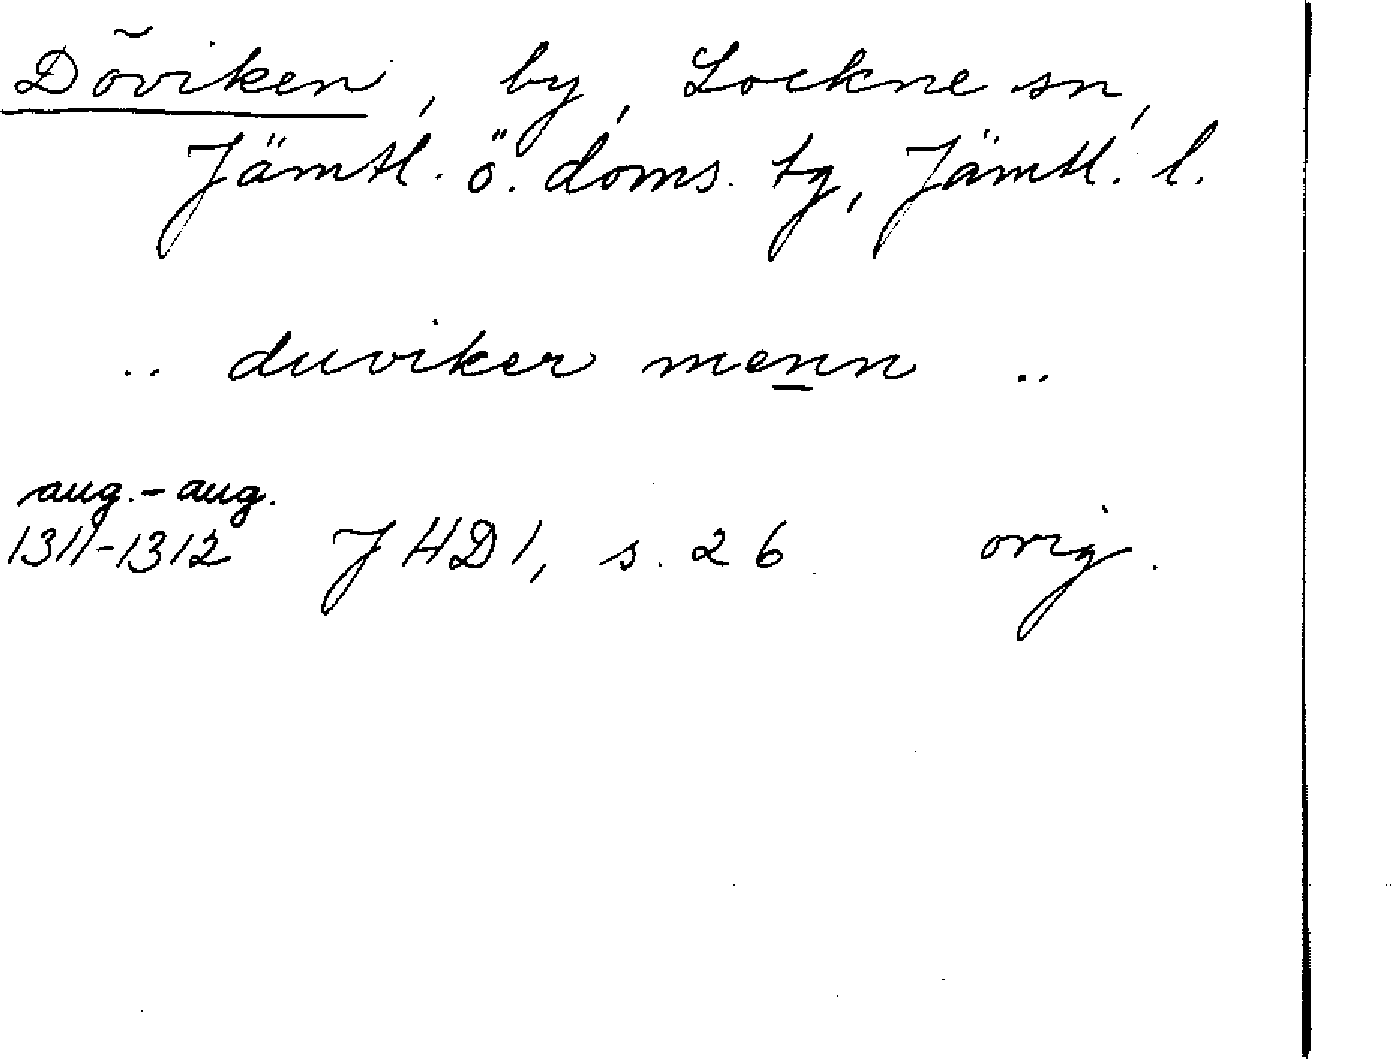 Döviken, by, Lockne sn,
Jämtl. ö. doms. tg, Jämtl. l.
.. duviker menn ..
aug. - aug.
1311-1312 JHD1, s. 26 orig.